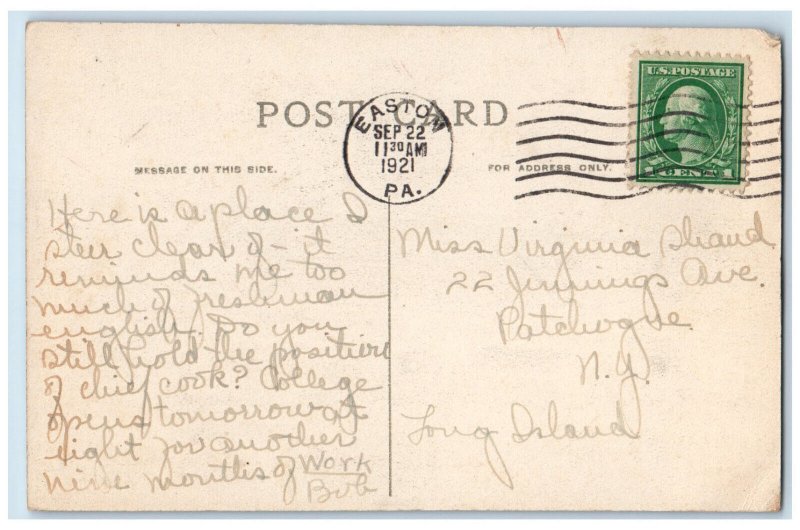 POST CARD
EASTON
SEP 22
11 30 AM
1921
PA.
U.S. POSTAGE
1 CENT 1
MESSAGE ON THIS SIDE.
FOR ADDRESS ONLY.
Here is a place I
steer clear of - it
reminds me too
much of freshman
english. Do you
still hold the position
of chief cook? College
opens tomorrow at
eight for another
nine months of Work
Bob
Miss Virginia Strand
22 Jennings Ave.
Patchogue
N.Y.
Long Island